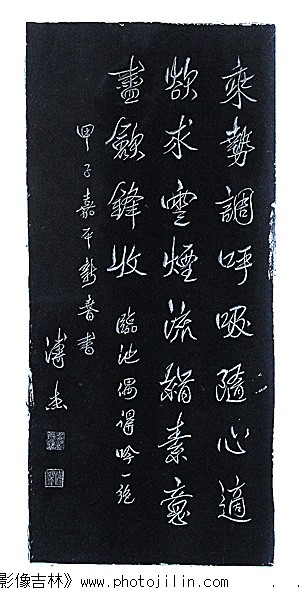 乘勢調呼吸隨心適
欲求雲煙流絹素意
盡斂鋒收 臨池偶得吟一絕
甲子嘉平新春書
溥杰
影像吉林》 www.photojilin.com